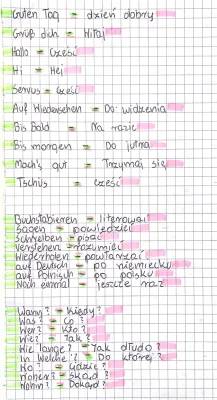 Guten Tag = dzień dobry
Grüß dich = Witaj
Hallo = Cześć
Hi = Hej
Servus = Cześć
Auf Wiedersehen = Do widzenia
Bis Bald = Na razie
Bis morgen = Do jutra
Mach's gut = Trzymaj się
Tschüs = cześć
Buchstabieren = literować
Sagen = powiedzieć
Schreiben = pisać
Verstehen = rozumieć
Wiederholen = powtarzać
auf Deutsch = po niemiecku
auf Polnisch = po polsku
Noch einmal = jeszcze raz
Wann? = Kiedy?
Was? = Co?
Wer? = Kto?
Wie? = Jak?
Wie lange? = Jak długo?
In welche? = Do której?
Wo? = Gdzie?
Woher? = Skąd?
Wohin? = Dokąd?